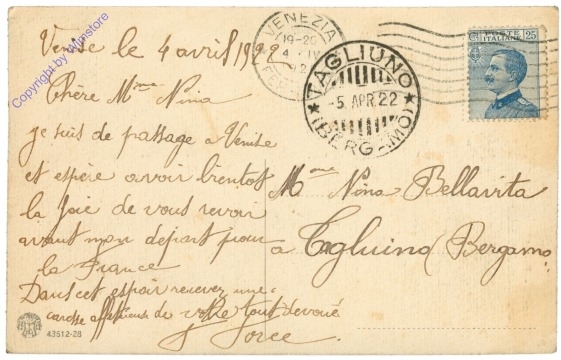 Copyright by Almstore
Venise le 4 avril 1922
Chère Mme Nina
je suis de passage a Venise
et espère avoir bientot
la joie de vous revoir
avant mon départ pour
la France
Dans cet espoir recevez une
caresse affectueuse de votre tout dévoué
43512-28
VENEZIA
19-20
4 IV
POSTE ITALIANE
25
TAGLIUNO
-5 APR.22
(BERGAMO)
Mme Nina Bellavita
à Tagliuno (Bergamo)